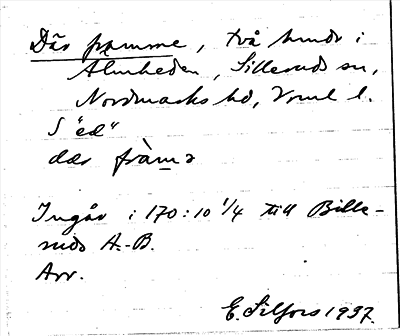 Där framme, två hmdr i
Älmheden, Sillerud sn,
Nordmarks hd, Vrml l.
S "ed"
dær fràmə
Ingår i 170:10 1/4 till Bille-
ruds A.-B.
Avr.
E. Silfors 1937.